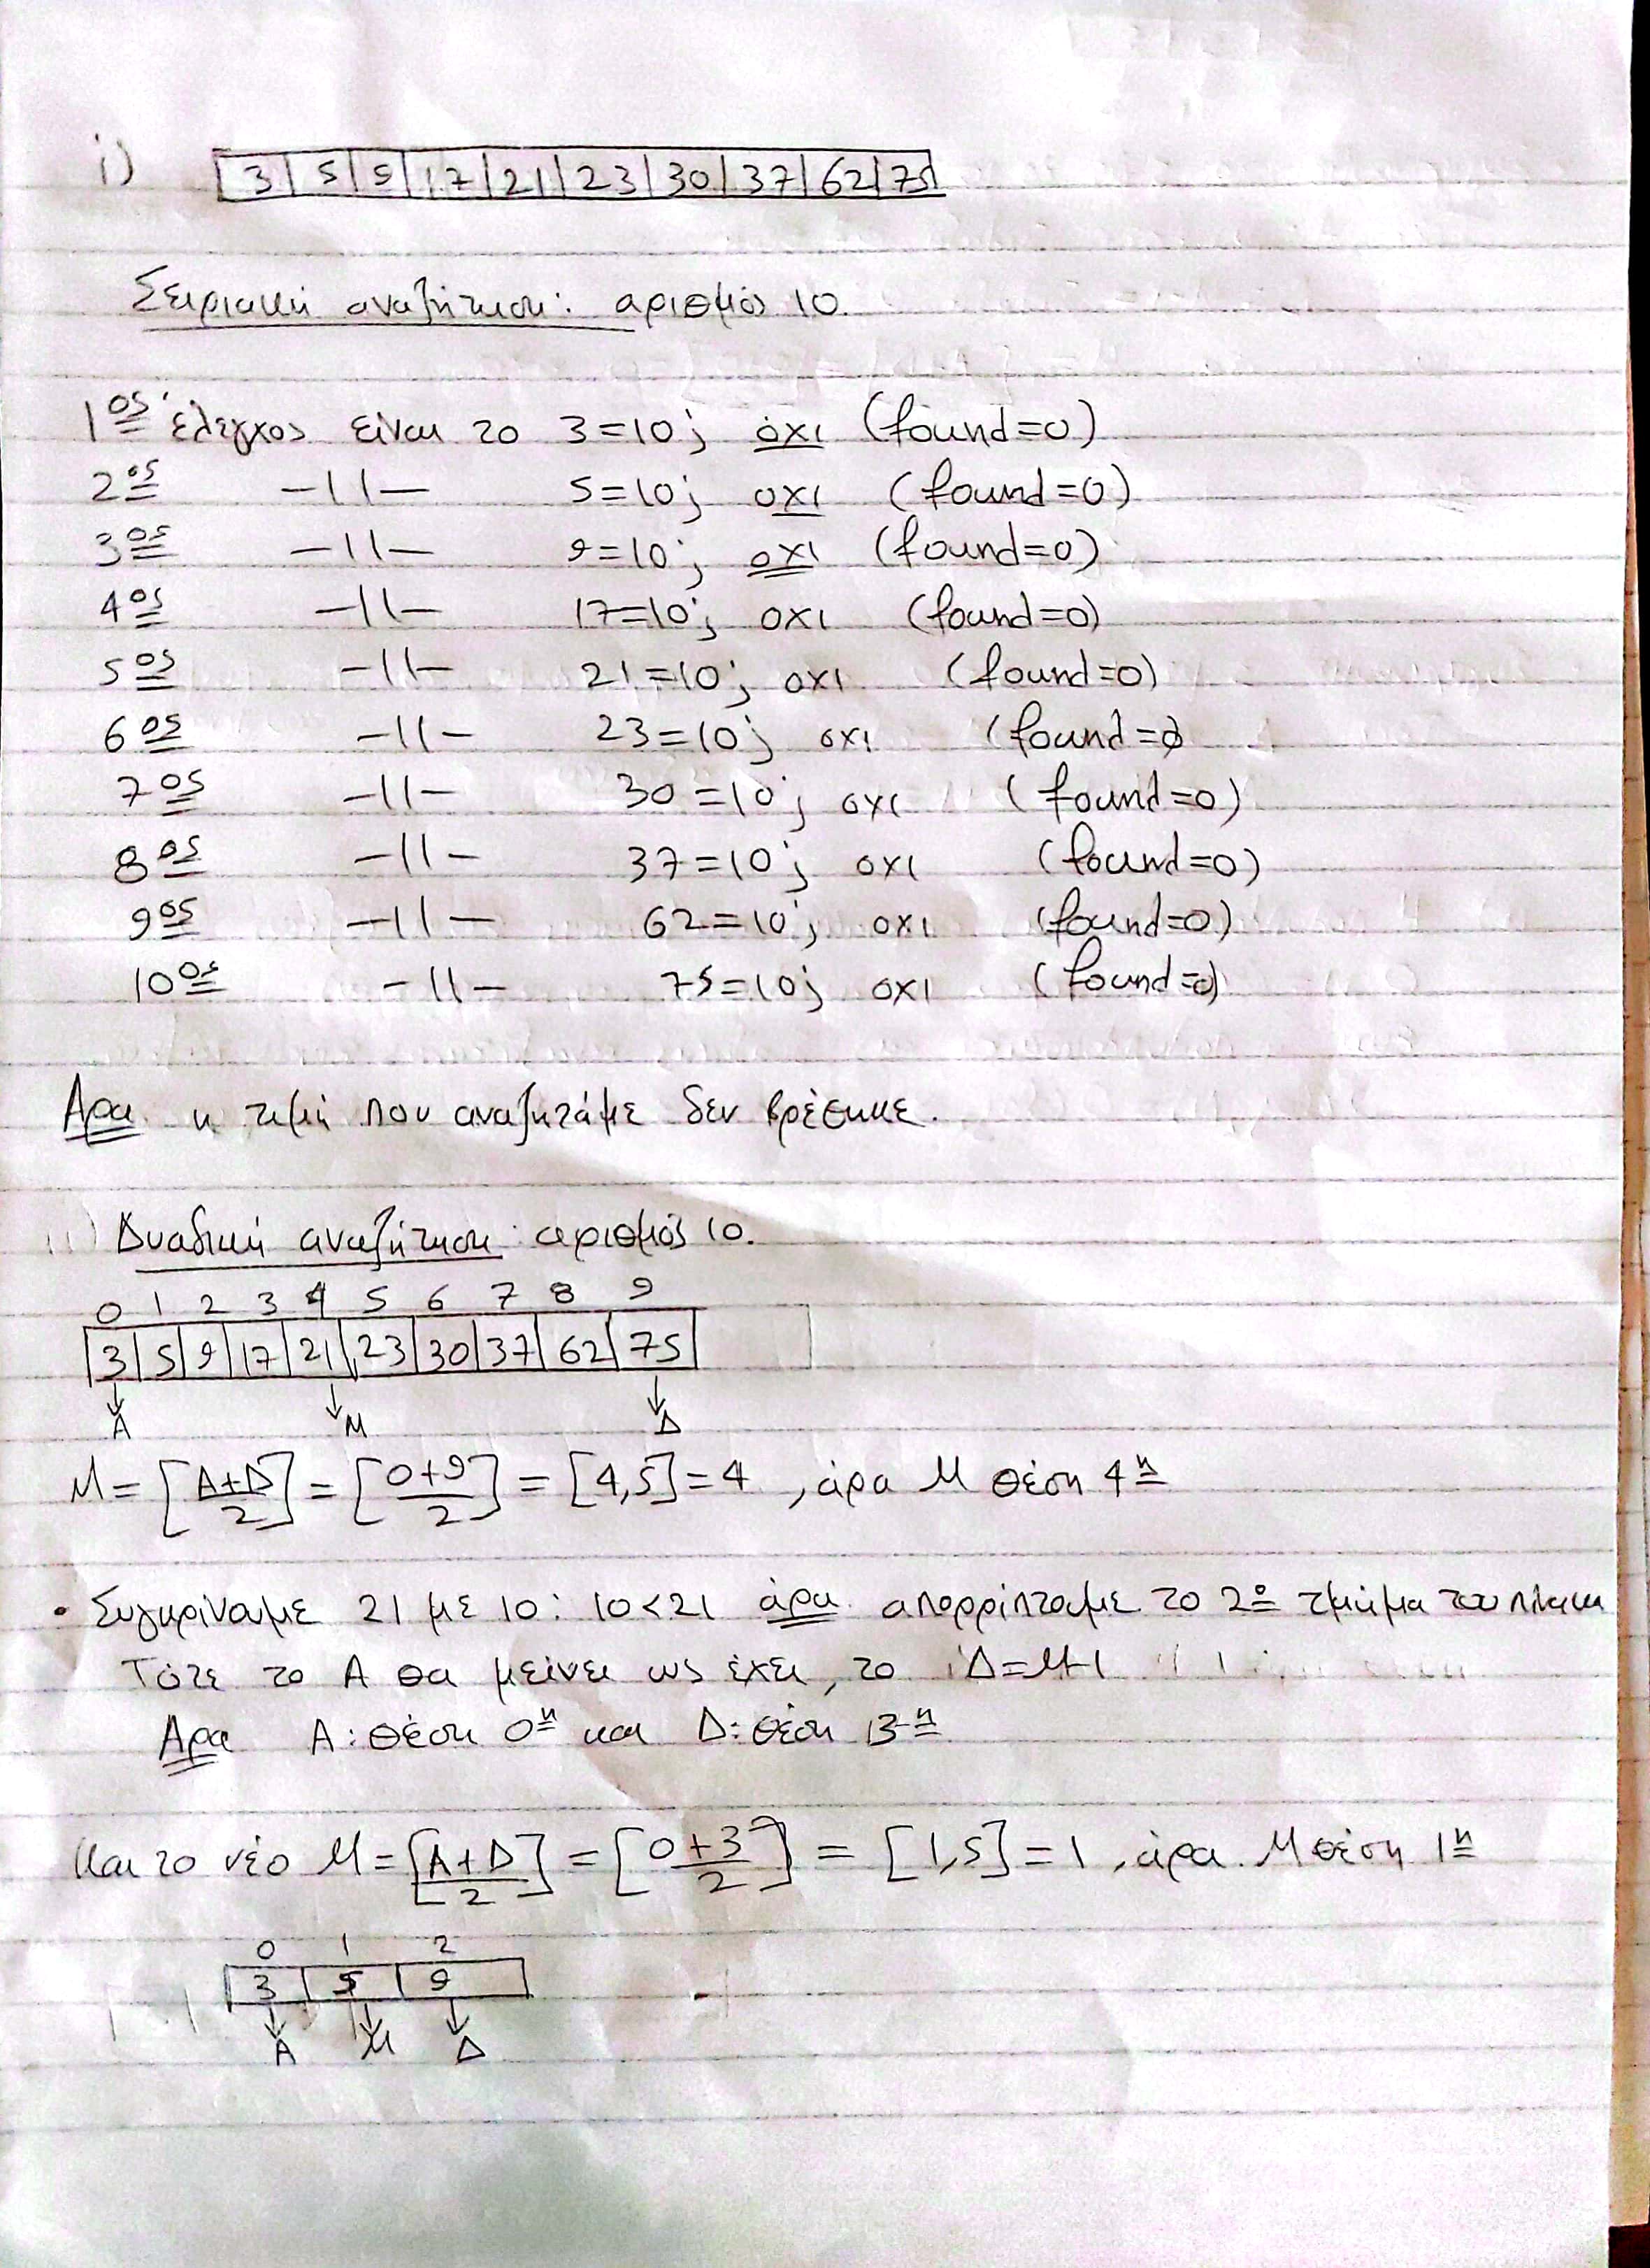 i) 3 5 9 17 21 23 30 37 62 75
Σειριακή αναζήτηση: αριθμός 10.
1ος έλεγχος είναι το 3=10; όχι (found=0)
2ος -||- 5=10; οχι (found=0)
3ος -||- 9=10; οχι (found=0)
4ος -||- 17=10; οχι (found=0)
5ος -||- 21=10; οχι (found=0)
6ος -||- 23=10; οχι (found=0
7ος -||- 30=10; οχι (found=0)
8ος -||- 37=10; οχι (found=0)
9ος -||- 62=10; οχι (found=0)
10ος -||- 75=10; οχι (found=0)
Αρα η τιμή που αναζητάμε δεν βρέθηκε.
ii) Δυαδική αναζήτηση: αριθμός 10.
0 1 2 3 4 5 6 7 8 9
3 5 9 17 21 23 30 37 62 75
Α Μ Δ
Μ = [Α+Δ/2] = [0+9/2] = [4,5] = 4 , άρα Μ θέση 4η
• Συγκρίνουμε 21 με 10: 10<21 άρα απορρίπτουμε το 2ο τμήμα του πίνακα
Τότε το Α θα μείνει ως έχει, το Δ=Μ-1
Αρα Α: θέση 0η και Δ: θέση 3η
Και το νέο Μ = [Α+Δ/2] = [0+3/2] = [1,5] = 1 , άρα Μ θέση 1η
0 1 2
3 5 9
Α Μ Δ